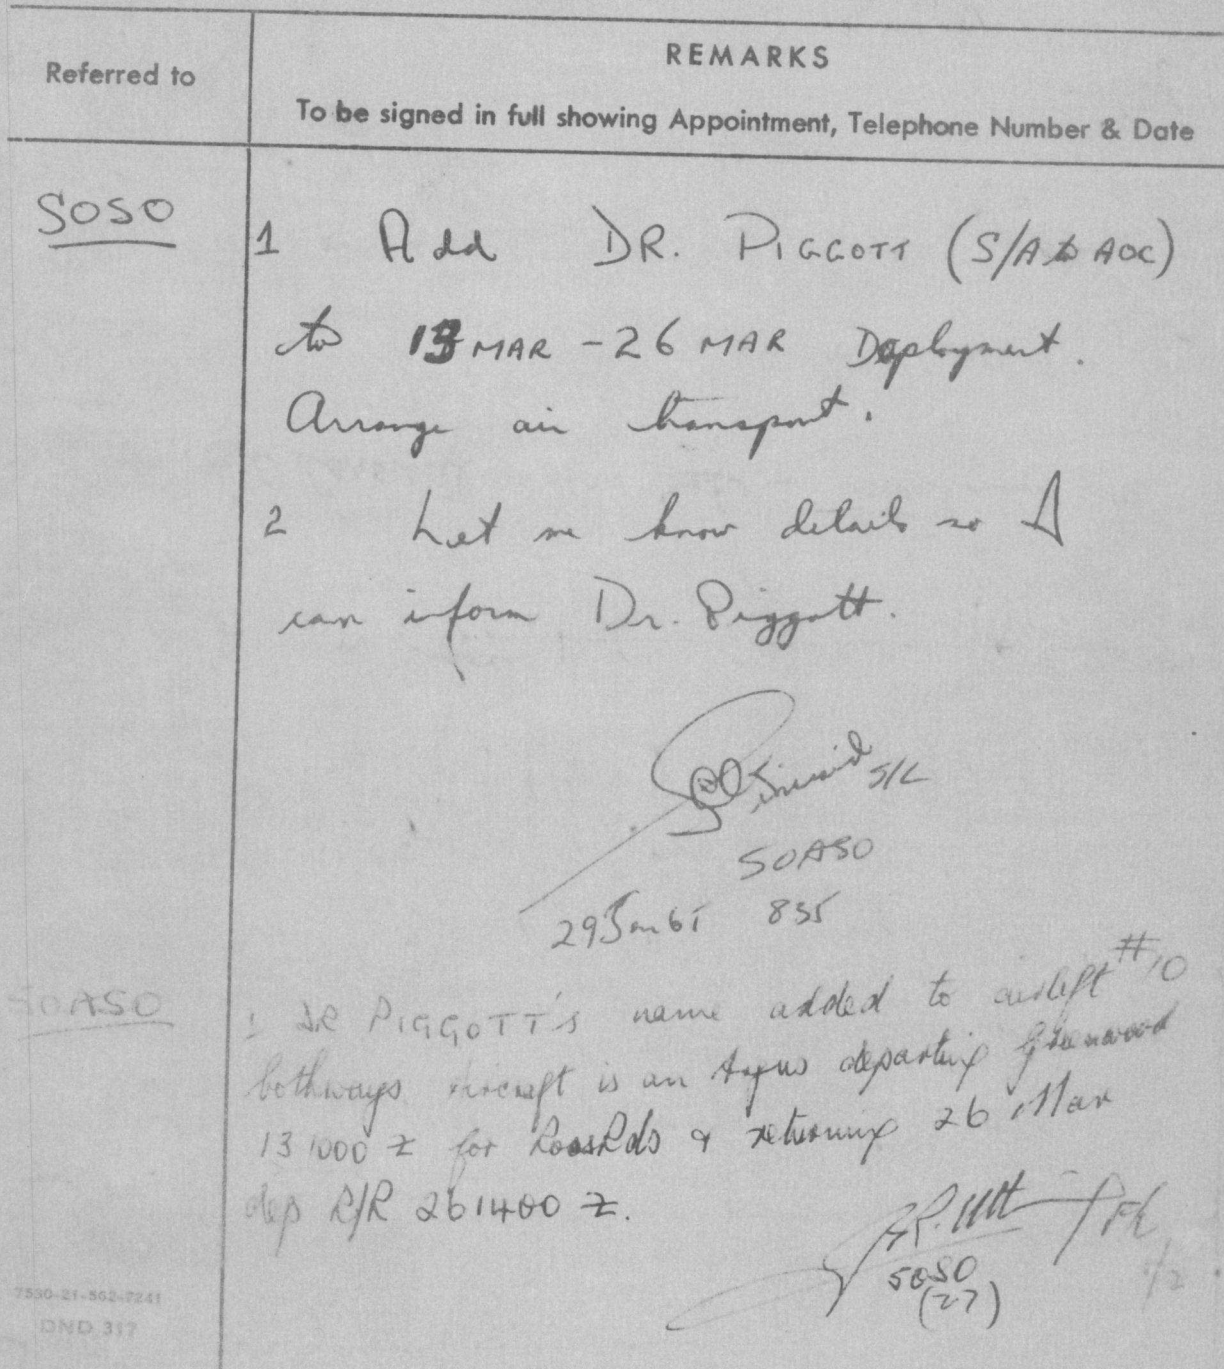 Referred to
REMARKS
To be signed in full showing Appointment, Telephone Number & Date
SOSO
1 Add DR. PIGGOTT (S/A to AOC)
to 13 MAR - 26 MAR Deployment.
Arrange air transport.
2 Let me know details so I
can inform Dr. Piggott.
S/L
SOASO
29 Jan 65 835
SOASO
1 DR PIGGOTT's name added to airlift #10
bothways aircraft is an Argus departing Greenwood
131000 Z for RoosRds & returning 26 Mar
dep R/R 261400 Z.
SOSO
(27)
7530-21-562-7241
DND 317